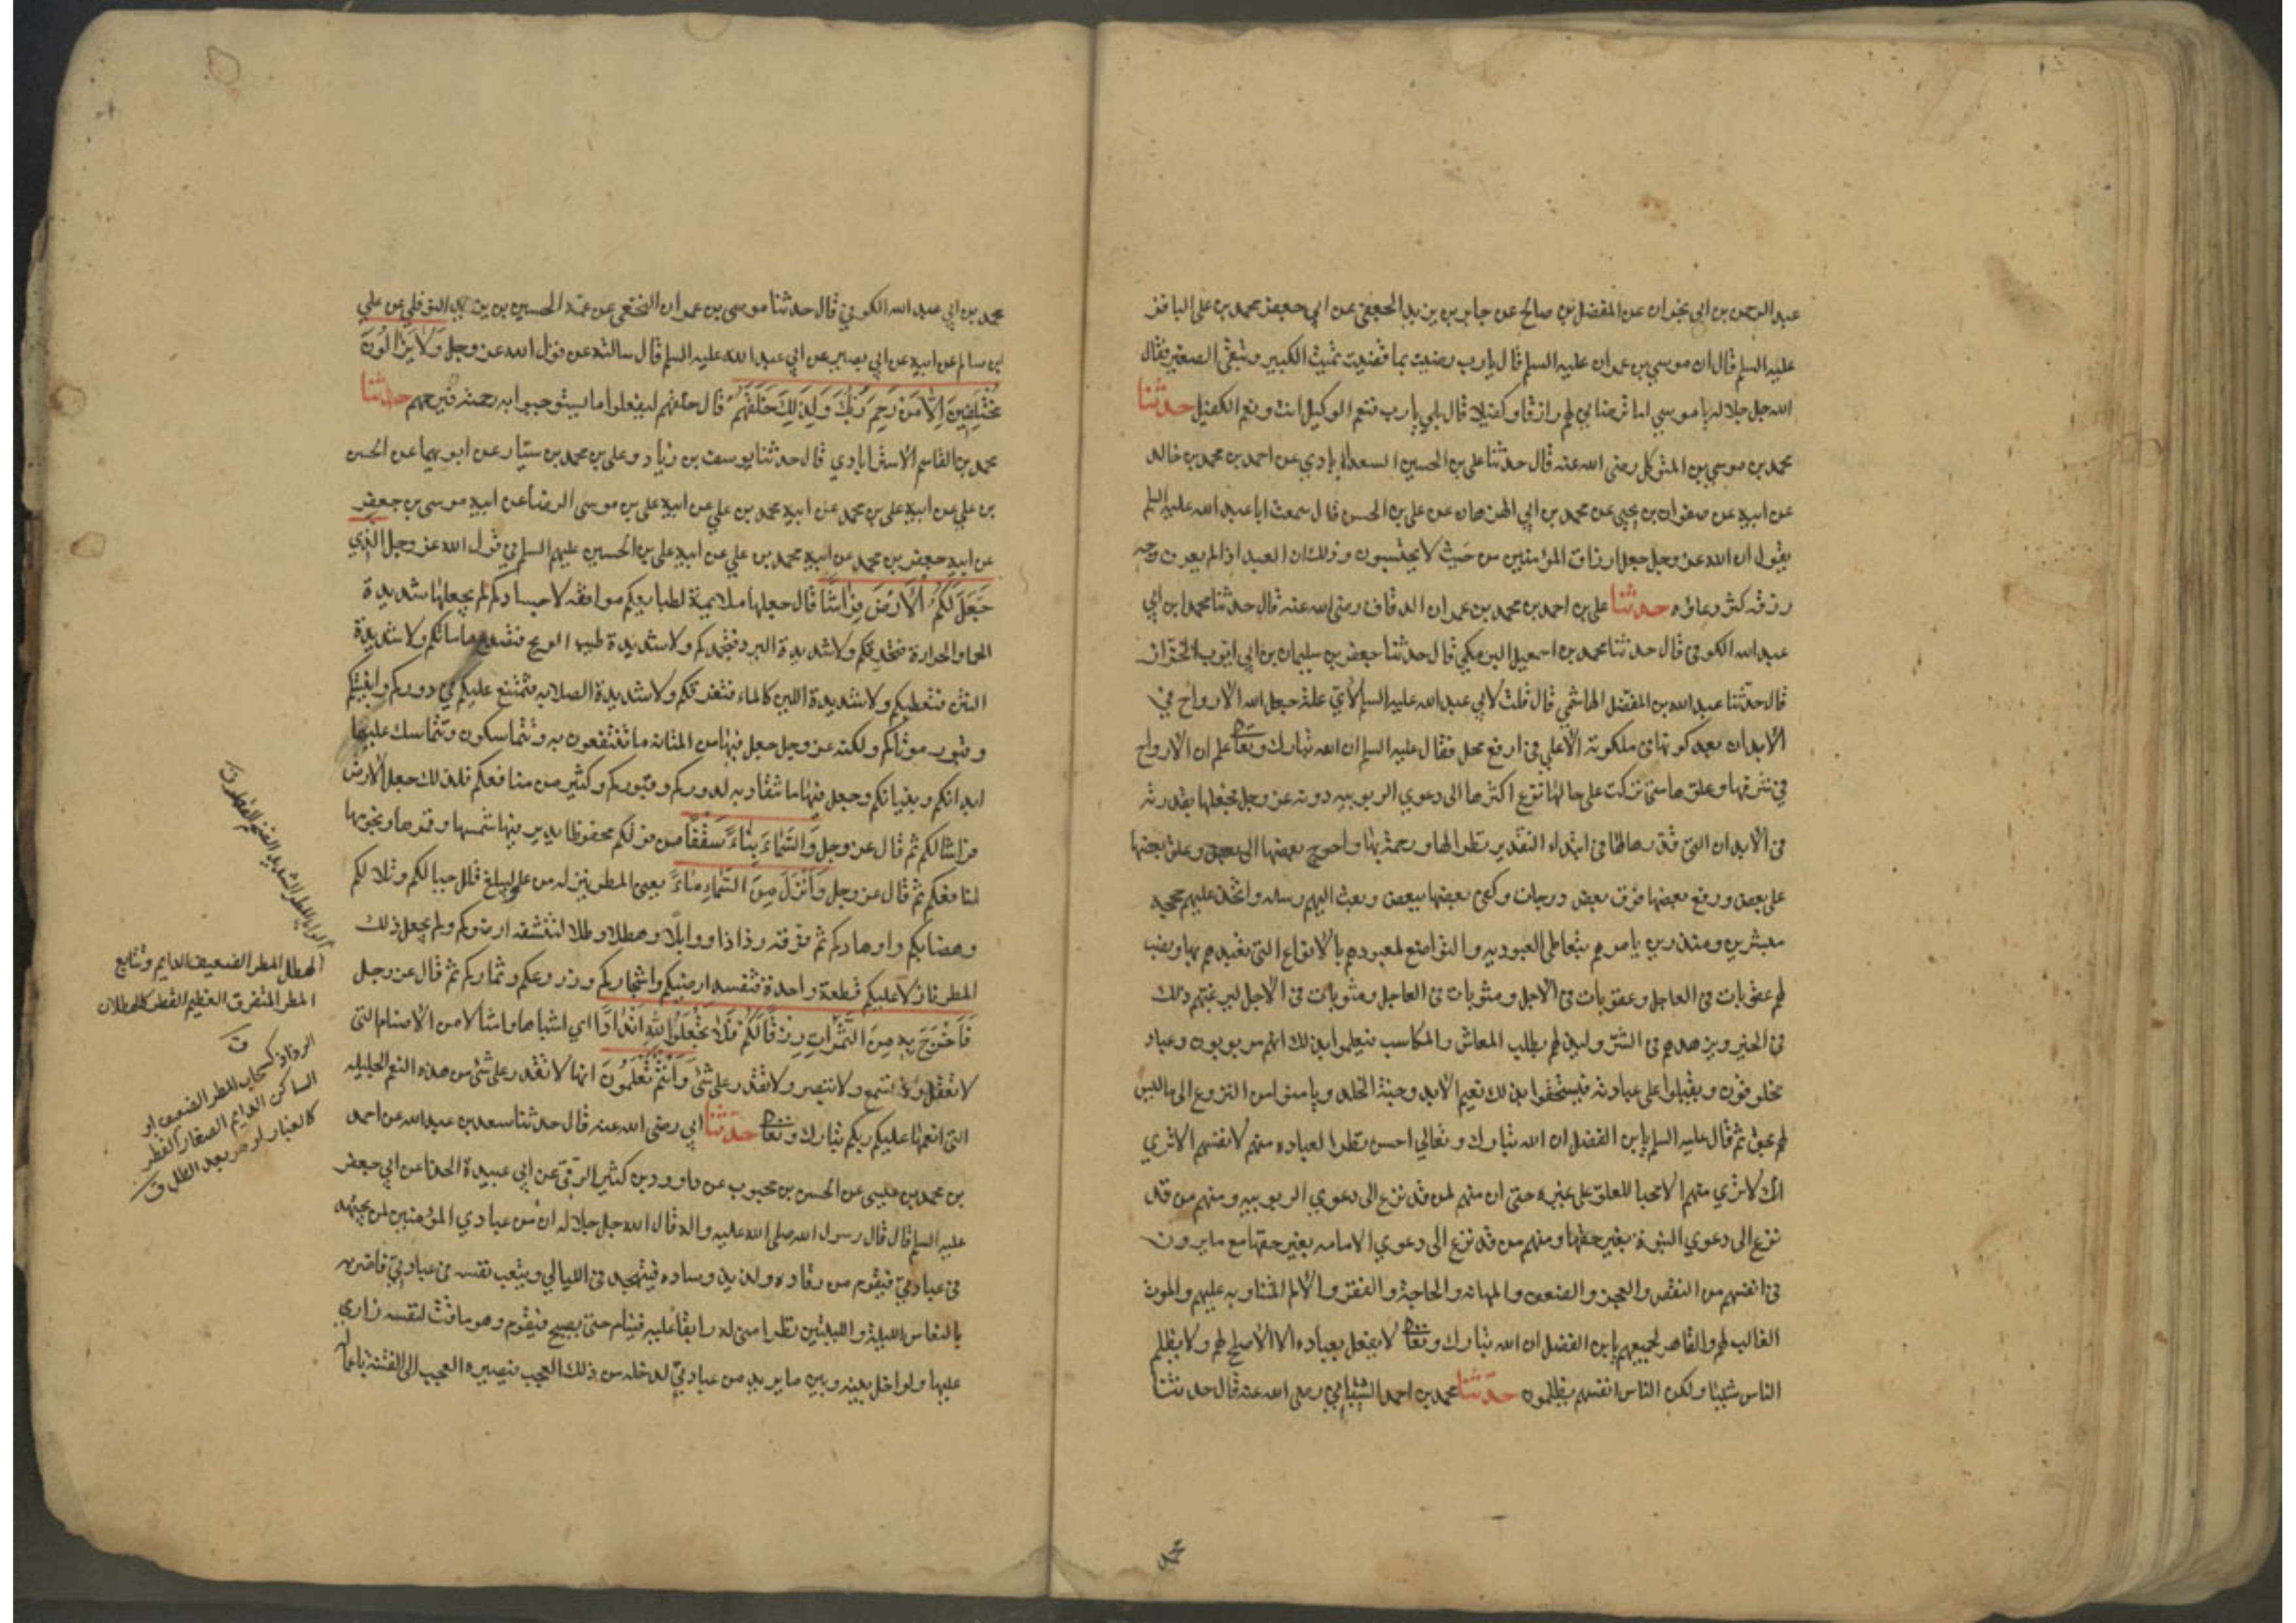 عبد الرحمن بن ابي نجران عن المفضل بن صالح عن جابر بن يزيد الجعفي عن ابي جعفر محمد بن علي الباقر
عليه السلم قال ان موسي بن عمران عليه السلم قال يا رب رضيت بما قضيت تميت الكبير وتبقي الصغير فقال
الله جل جلاله يا موسي اما ترضاني لهم رازقا وكفيلا قال بلي يا رب فنعم الوكيل انت ونعم الكفيل حدثنا
محمد بن موسي بن المتوكل رضي الله عنه قال حدثنا علي بن الحسين السعدابادي عن احمد بن محمد بن خالد
عن ابيه عن صفوان بن يحيي عن محمد بن ابي الهزهاز عن علي بن الحسن قال سمعت ابا عبد الله عليه السلم
يقول ان الله عز وجل جعل ارزاق المؤمنين من حيث لا يحتسبون وذلك ان العبد اذا لم يعرف وجه
رزقه كثر دعاؤه حدثنا علي بن احمد بن محمد بن عمران الدقاق رضي الله عنه قال حدثنا محمد ابن ابي
عبد الله الكوفي قال حدثنا محمد بن اسمعيل البرمكي قال حدثنا جعفر بن سليمان بن ايوب الخزاز
قال حدثنا عبد الله بن المفضل الهاشمي قال قلت لابي عبد الله عليه السلم لاي علة جعل الله الارواح في
الابدان بعد كونها في ملكوته الاعلي في ارفع محل فقال عليه السلم ان الله تبارك وتعا علم ان الارواح
في شرفها وعلوها متي تركت علي حالها نزع اكثرها الي دعوي الربوبيه دونه عز وجل فجعلها بقدرته
في الابدان التي قدرها لها في ابتداء التقدير نظرا لها ورحمة بها واحوج بعضها الي بعض وعلق بعضها
علي بعض ورفع بعضها فوق بعض درجات وكفي بعضها ببعض وبعث اليهم رسله واتخذ عليهم حججه
مبشرين ومنذرين يامرهم بتعاطي العبوديه والتواضع لمعبودهم بالانواع التي تعبدهم بها ونصب
لهم عقوبات في العاجل وعقوبات في الاجل ومثوبات في العاجل ومثوبات في الاجل ليرغبهم ذلك
في الخير ويزهدهم في الشر وليذلهم بطلب المعاش والمكاسب فيعلموا بذلك انهم مربوبون وعباد
مخلوقون ويقبلوا علي عبادته فيستحقوا بذلك نعيم الابد وجنة الخلد ويامنوا من النزوع الي ما ليس
لهم بحق ثم قال عليه السلم يا بن الفضل ان الله تبارك وتعالي احسن نظرا لعباده منهم لانفسهم الا تري
انك لا تري منهم الا محبا للعلو علي غيره حتي ان منهم لمن قد نزع الي دعوي الربوبيه ومنهم من قد
نزع الي دعوي النبوة بغير حقها ومنهم من قد نزع الي دعوي الامامه بغير حقها مع ما يرون
في انفسهم من النقص والعجز والضعف والمهانه والحاجة والفقر والالم المتناوبه عليهم والموت
الغالب لهم والقاهر لجميعهم يا بن الفضل ان الله تبارك وتعا لا يفعل بعباده الا الاصلح لهم ولا يظلم
الناس شيئا ولكن الناس انفسهم يظلمون حدثنا محمد بن احمد الشيباني رضي الله عنه قال حدثنا
محمد
محمد بن ابي عبد الله الكوفي قال حدثنا موسي بن عمران النخعي عن عمه الحسين بن يزيد النوفلي عن علي
ابن سالم عن ابيه عن ابي بصير عن ابي عبد الله عليه السلم قال سالته عن قول الله عز وجل وَلَا يَزَالُونَ
مُخْتَلِفِينَ اِلَّا مَنْ رَحِمَ رَبُّكَ وَلِذَلِكَ خَلَقَهُمْ قال خلقهم ليفعلوا ما يستوجبوا به رحمته فيرحمهم حدثنا
محمد بن القاسم الاسترابادي قال حدثنا يوسف بن زياد وعلي بن محمد بن سيار عن ابويهما عن الحسن
بن علي عن ابيه علي بن محمد عن ابيه محمد بن علي عن ابيه علي بن موسي الرضا عن ابيه موسي بن جعفر
عن ابيه جعفر بن محمد عن ابيه محمد بن علي عن ابيه علي بن الحسين عليهم السلم في قول الله عز وجل الَّذِي
جَعَلَ لَكُمُ الْاَرْضَ فِرَاشًا قال جعلها ملايمة لطبايعكم موافقه لاجسادكم لم يجعلها شديدة
الحما والحرارة فتحرقكم ولا شديدة البرد فتجمدكم ولا شديدة طيب الريح فتصدع هاماتكم ولا شديدة
النتن فتعطبكم ولا شديدة اللين كالماء فتغرقكم ولا شديدة الصلابه فتمتنع عليكم في دوركم وابنيتكم
وقبور موتاكم ولكنه عز وجل جعل فيها من المتانه ما تنتفعون به وتتماسكون وتتماسك عليها
ابدانكم وبنيانكم وجعل فيها ما تنقاد به لدوركم وقبوركم وكثير من منافعكم فلذلك جعل الارض
فراشا لكم ثم قال عز وجل وَالسَّمَاءَ بِنَاءً سَقْفًا من فوقكم محفوظا يدير فيها شمسها وقمرها ونجومها
لمنافعكم ثم قال عز وجل وَاَنْزَلَ مِنَ السَّمَاءِ مَاءً يعني المطر ينزله من علي ليبلغ قلل جبالكم وتلالكم
وهضابكم واوهادكم ثم فرقه رذاذا ووابلا وهطلا وطلا لتنشفه ارضوكم ولم يجعل ذلك
المطر نازلا عليكم قطعة واحدة فتفسد ارضيكم واشجاركم وزروعكم وثماركم ثم قال عز وجل
فَاَخْرَجَ بِهِ مِنَ الثَّمَرَاتِ رِزْقًا لَكُمْ فَلَا تَجْعَلُوا لِلّٰهِ اَنْدَادًا اي اشباها وامثالا من الاصنام التي
لا تعقل ولا تسمع ولا تبصر ولا تقدر علي شئ وَاَنْتُمْ تَعْلَمُونَ انها لا تقدر علي شئ من هذه النعم الجليله
التي انعمها عليكم ربكم تبارك وتعا حدثنا ابي رضي الله عنه قال حدثنا سعد بن عبد الله عن احمد
بن محمد بن عيسي عن الحسن بن محبوب عن داوود بن كثير الرقي عن ابي عبيدة الحذا عن ابي جعفر
عليه السلم قال قال رسول الله صلي الله عليه واله قال الله جل جلاله ان من عبادي المؤمنين لمن يجتهد
في عبادتي فيقوم من رقاده ولذيذ وساده فيتهجد في الليالي ويتعب نفسه في عبادتي فاضربه
بالنعاس الليلة والليلتين نظرا مني له وابقاء عليه فينام حتي يصبح فيقوم وهو ماقت لنفسه زاري
عليها ولو اخل بينه وبين ما يريد من عبادتي لدخله من ذلك العجب فيصيره العجب الي الفتنة باعماله
الوابل المطر الشديد الضخم القطر ق
الهطل المطر الضعيف الدايم وتتابع
المطر المتفرق العظيم القطر كالهطلان
ق
الرذاذ كسحاب المطر الضعيف او
الساكن الدايم الصغار القطر
كالغبار او هو بعد الطل ق